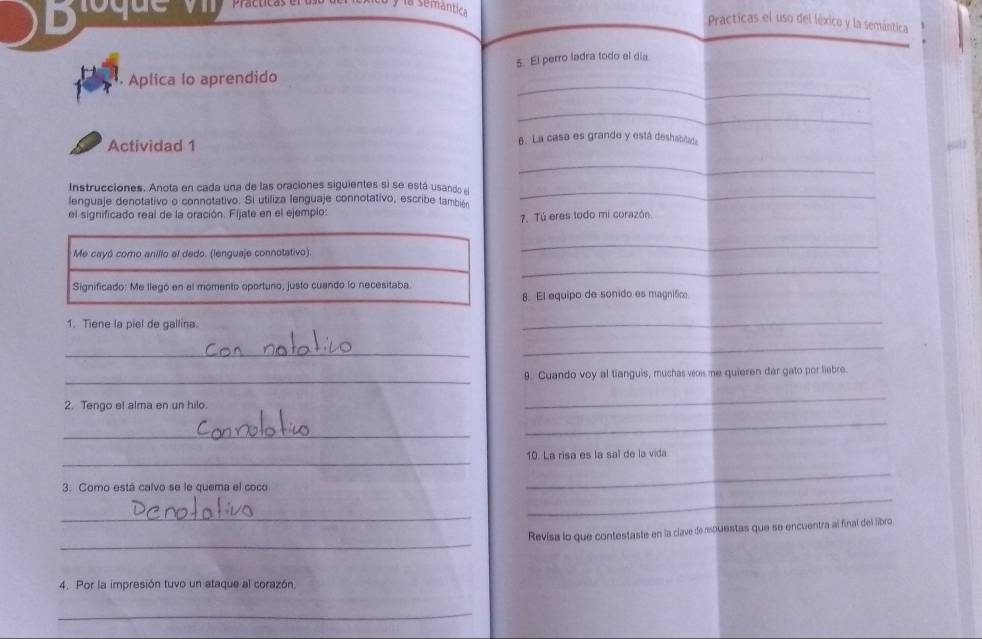 Bloque VII Practicas el uso del léxico y la semántica
Aplica lo aprendido
Actividad 1
Instrucciones. Anota en cada una de las oraciones siguientes si se está usando el
lenguaje denotativo o connotativo. Si utiliza lenguaje connotativo, escribe también
el significado real de la oración. Fíjate en el ejemplo:
Me cayó como anillo al dedo. (lenguaje connotativo).
Significado: Me llegó en el momento oportuno, justo cuando lo necesitaba.
1. Tiene la piel de gallina.
con notativo
2. Tengo el alma en un hilo.
Connotativo
3. Como está calvo se le quema el coco.
Denotativo
4. Por la impresión tuvo un ataque al corazón.
Practicas el uso del léxico y la semántica
5. El perro ladra todo el día.
6. La casa es grande y está deshabitada
7. Tú eres todo mi corazón.
8. El equipo de sonido es magnífico.
9. Cuando voy al tianguis, muchas veces me quieren dar gato por liebre.
10. La risa es la sal de la vida.
Revisa lo que contestaste en la clave de respuestas que se encuentra al final del libro.